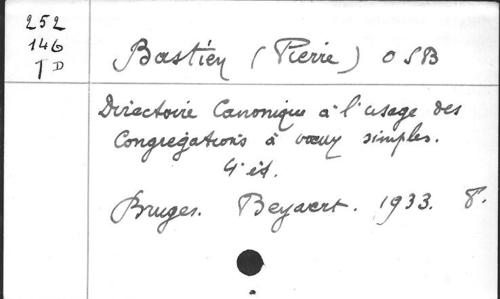 252
146
TD
Bastien (Pierre) OSB
Directoire Canonique à l'usage des
Congrégations à vœux simples.
4e éd.
Bruges. Beyaert. 1933. 8°.